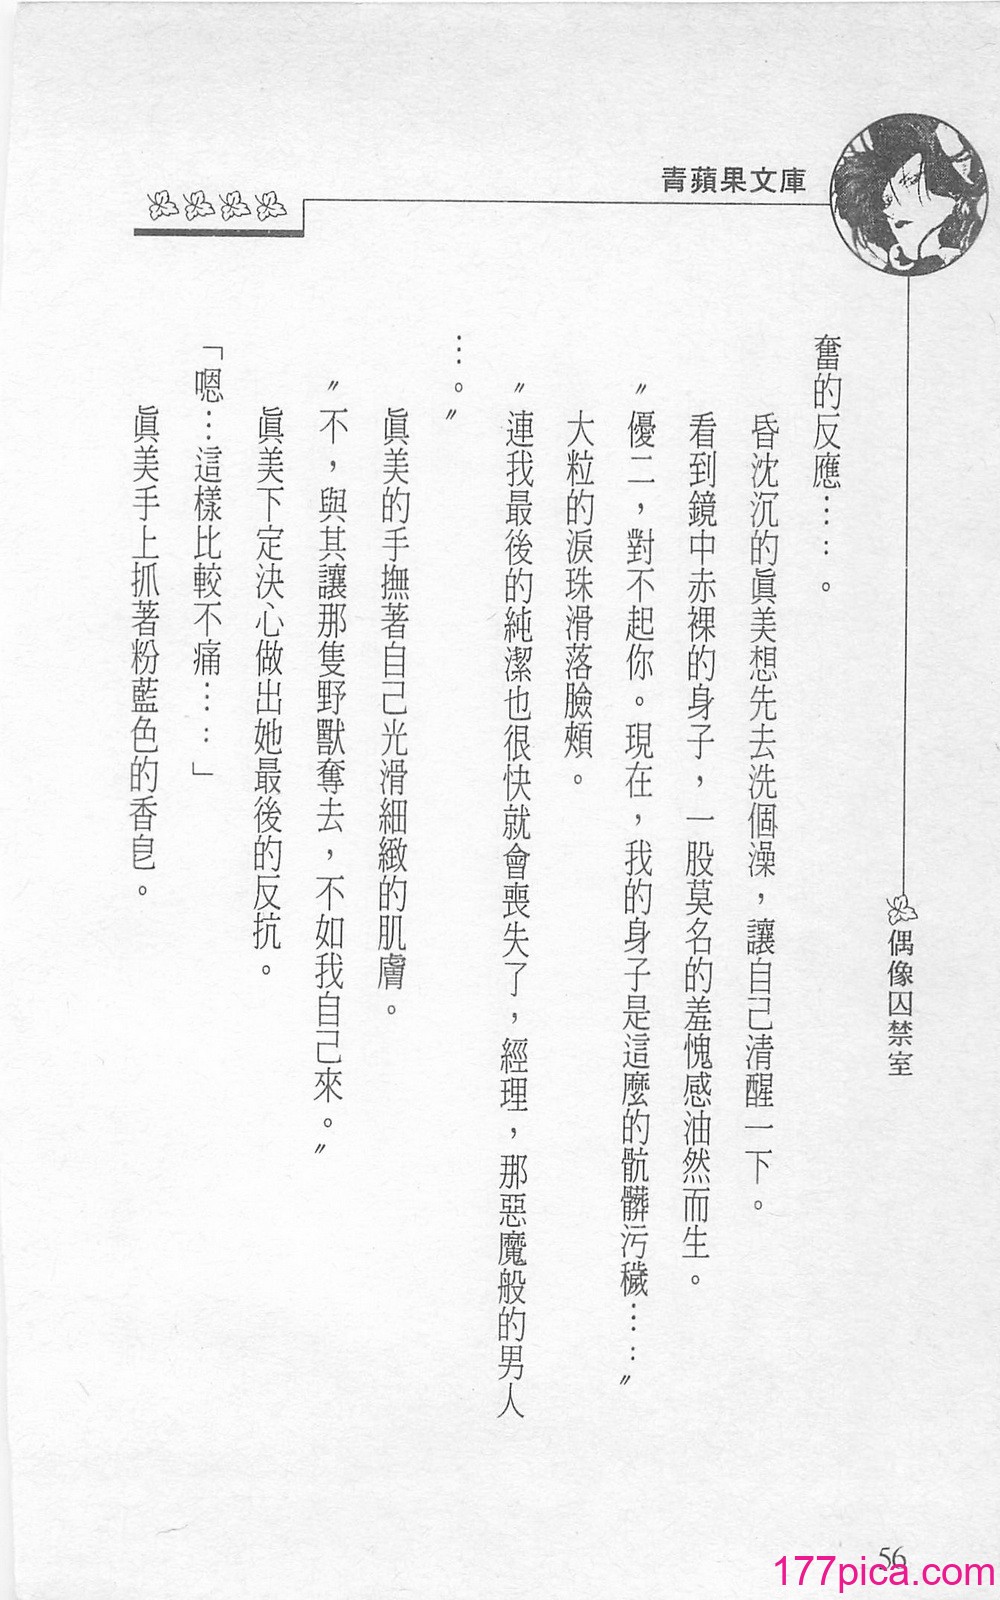 青蘋果文庫
偶像囚禁室
奮的反應……。
昏沈沉的眞美想先去洗個澡，讓自己清醒一下。
看到鏡中赤裸的身子，一股莫名的羞愧感油然而生。
〝優二，對不起你。現在，我的身子是這麼的骯髒污穢……〞
大粒的淚珠滑落臉頰。
〝連我最後的純潔也很快就會喪失了，經理，那惡魔般的男人
…。〞
眞美的手撫著自己光滑細緻的肌膚。
〝不，與其讓那隻野獸奪去，不如我自己來。〞
眞美下定決心做出她最後的反抗。
「嗯…這樣比較不痛……」
眞美手上抓著粉藍色的香皂。
56
177pica.com